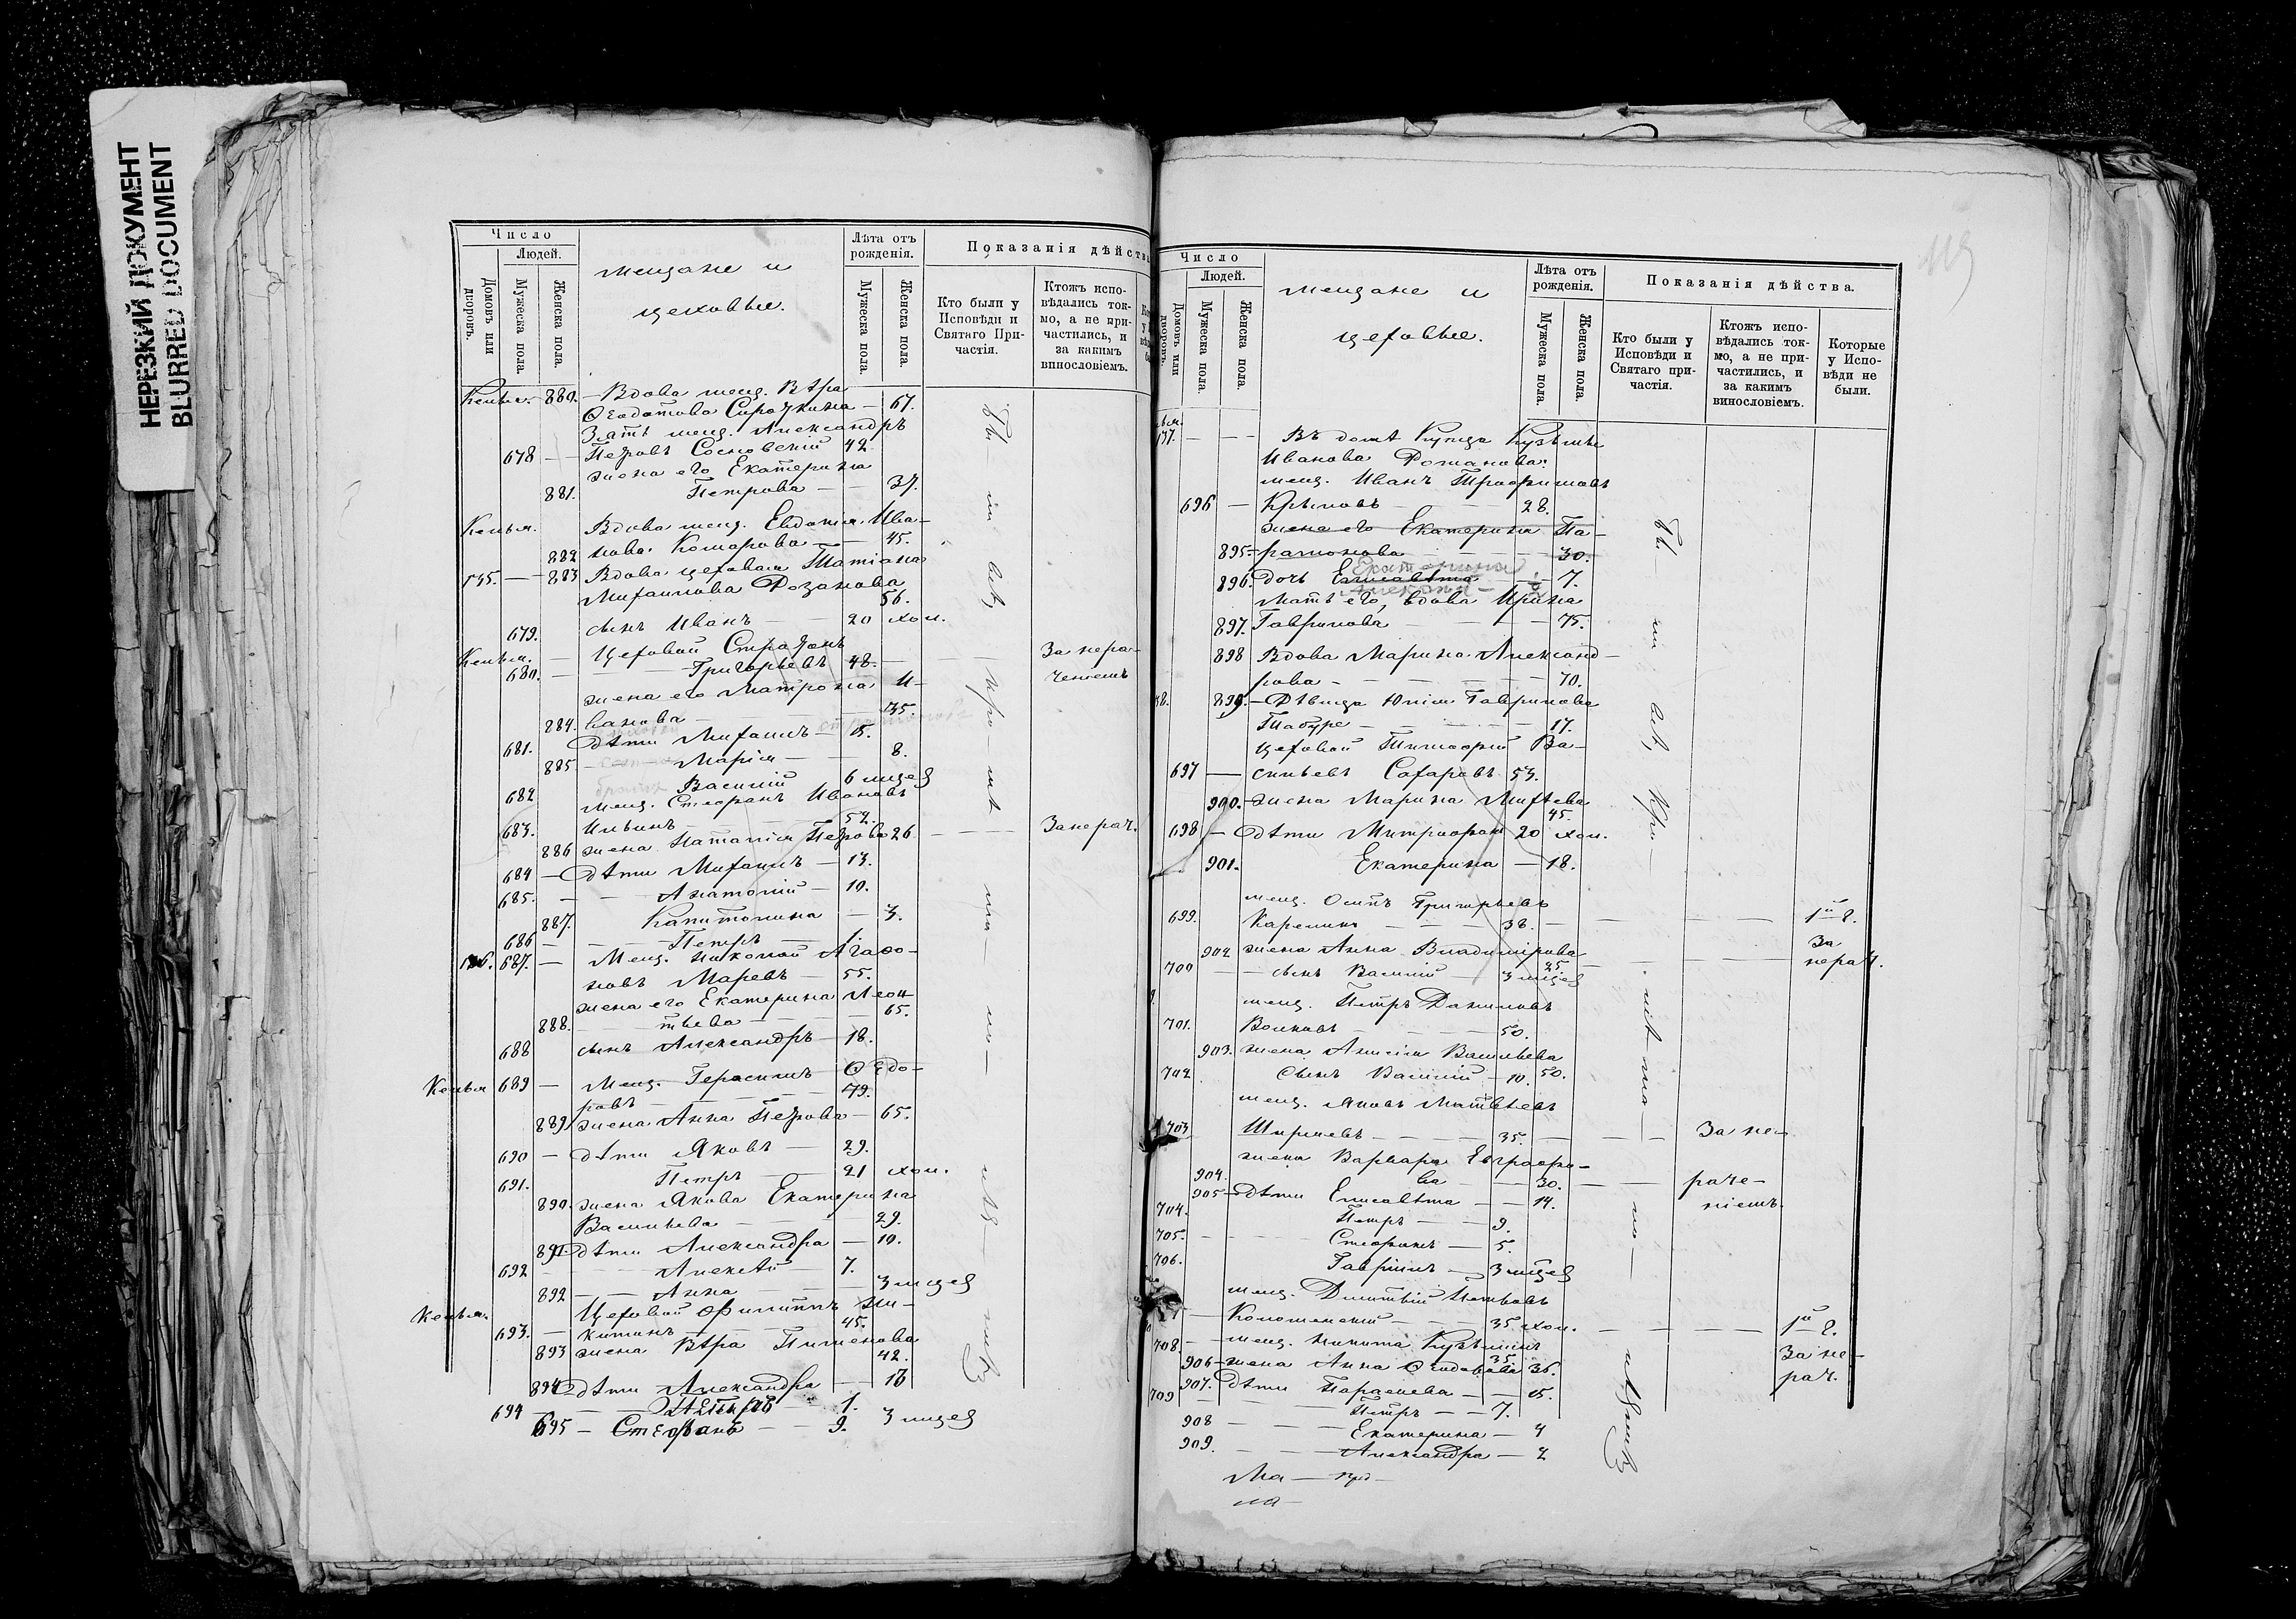 НЕРЕЗКИЙ ДОКУМЕНТ
BLURRED DOCUMENT
Число
Людей.
Домовъ или дворовъ.
Мужеска пола.
Женска пола.
мещане и
цеховые.
Лѣта отъ рожденія.
Мужеска пола.
Женска пола.
Показанія дѣйства
Кто были у Исповѣди и Святаго Причастія.
Ктожъ исповѣдались токмо, а не причастились, и за какимъ винословіемъ.
880. Вдова мещ. Вѣра
Ѳеодотова Сорочкина — 67.
Зять мещ. Александръ
678 — Петровъ Сосновскій 42
жена его Екатерина
881. Петрова — 37.
Вдова мещ. Евдокія Ива-
882 нова Комарова — 45.
135. — 883 Вдова цеховая Татіана
Михаилова Розанова
56.
679. сынъ Иванъ — 20 хол.
Цеховой Стратонъ За нера-
680. — Григорьевъ 48. — ченіемъ
жена его Матрона И-
884. ванова — 35.
681. дѣти Михаилъ — 15.
885 — Марія — 8.
682 Василій 6 мцев
мещ. Стефанъ Ивановъ
683. Ильинъ 52.
886 жена Наталія Петрова 26 — За нерач.
684 — дѣти Михаилъ — 13.
685. — Анатолій — 10.
887. Капитолина — 3.
686 — Петръ — 1.
136. 687. — Мещ. Николай Агафо-
новъ Маревъ — 55.
жена его Екатерина Леон-
888. тьева — 65.
688 сынъ Александръ — 18.
689 — Мещ. Герасимъ Ѳедо-
ровъ — 79.
889 жена Анна Петрова — 65.
690 — дѣти Яковъ — 29.
691. Петръ — 21 хол.
890. жена Якова Екатерина
Васильева — 29.
891 дѣти Александра — 10.
692 — Алексѣй — 7.
892 — Анна — 3 мцев
Цеховой Филиппъ Ни-
693. — китинъ — 45.
893 жена Вѣра Пименова
42.
894 дѣти Александра — 16
694 — 1.
695 — Стефанъ — 9. 3 мцев
119
Число
Людей.
Домовъ или дворовъ.
Мужеска пола.
Женска пола.
мещане и
цеховые.
Лѣта отъ рожденія.
Мужеска пола.
Женска пола.
Показанія дѣйства.
Кто были у Исповѣди и Святаго причастія.
Ктожъ исповѣдались токмо, а не причастились, и за какимъ винословіемъ.
Которые у Исповѣди не были.
137. — Въ домѣ Купца Кузьмы
Иванова Романова:
мещ. Иванъ Трофимовъ
696 — Крыловъ — 28.
жена его Екатерина Па-
895 — рамонова — 30.
Екатерина
896. дочь Елисавета — 7.
Мать его, вдова Ирина
897. Гаврилова — 75.
898 Вдова Марина Александ-
рова — 70.
899. — Дѣвица Юлія Гаврилова
17.
цеховой Тимофей Ва-
697 — сильевъ Сахаровъ 53.
900. — жена Марина Михѣева
45.
698 — дѣти Митрофанъ 20 хол.
901. Екатерина — 18.
мещ. Осипъ Григорьевъ
699. Карелинъ — 38. — 1й г.
902 жена Анна Владимірова За
25. нерач.
700 — сынъ Василій 3 мцев
мещ. Петръ Даниловъ
701. Волковъ — 50.
903. жена Анисія Васильева
702 Сынъ Василій — 10. 50.
мещ. Яковъ Матвѣевъ
703 Ширяевъ — 35. — За не-
жена Варвара Евграфо-
904. ва — 30. — раче-
905 — дѣти Елисавета — 14. ніемъ.
704. Петръ — 9.
705. Стефанъ — 5.
706. Гавріилъ — 3 мцев
мещ. Димитрій Петровъ
Коломенскій — 35 хол. — 1й г.
708. — мещ. Никита Кузьминъ За не-
35.
906 — жена Анна Ѳеодорова 36. рач.
907. дѣти Параскева — 15.
709 Петръ — 7.
908 — Екатерина — 4
909. — Александра — 2